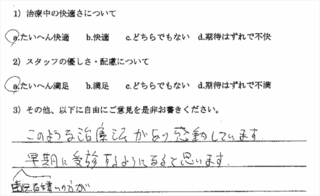 1）治療中の快適さについて
a.たいへん快適 b.快適 c.どちらでもない d.期待はずれで不快
2）スタッフの優しさ・配慮について
a.たいへん満足 b.満足 c.どちらでもない d.期待はずれで不満
3）その他、以下に自由にご意見を是非お書きください。
このような治療法があり、感動しています
早期に受診するようになると思います.
歯医者嫌いの方が